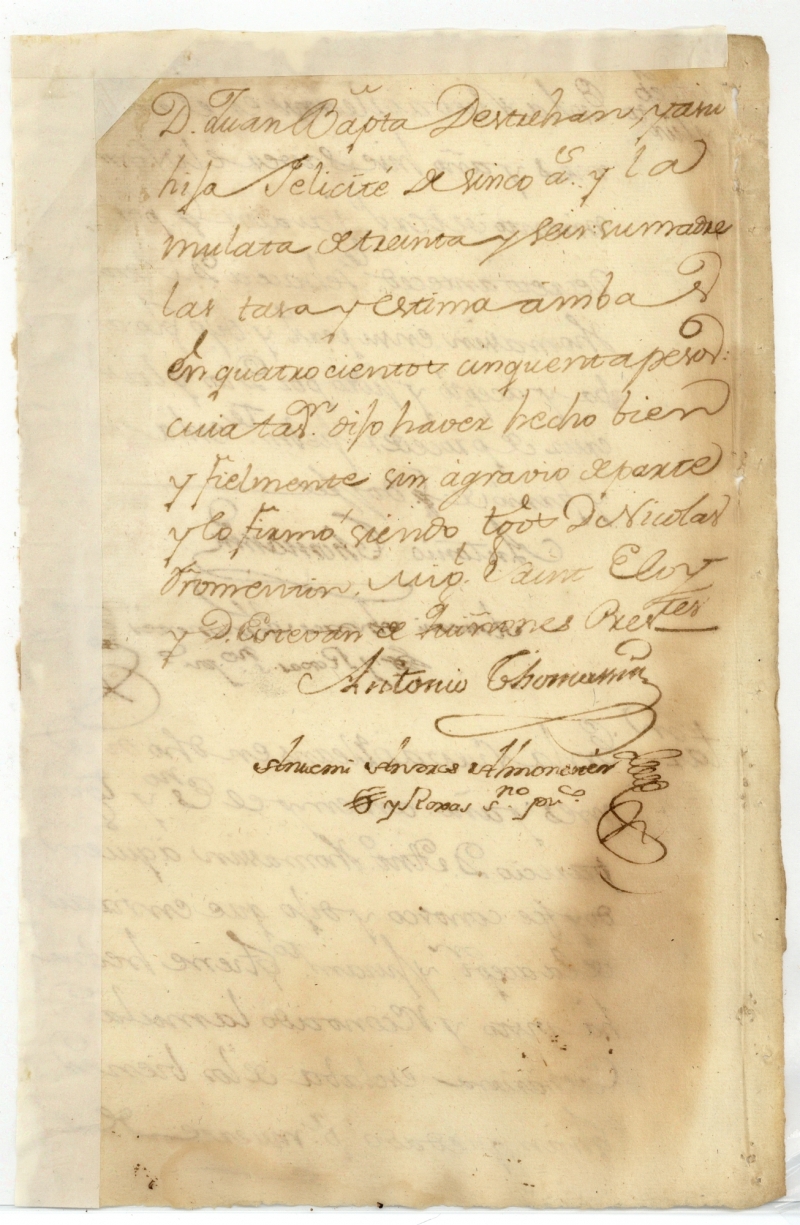 D. Juan Bapta Destrehan, y a su
hija Felicité de sinco as. y la
mulata de treinta y seis su madre
las tasa y estima ambas
en quatrocientos cinquenta pesos:
cuia tason. dijo haver hecho bien
y fielmente sin agravio de parte
y lo firmó siendo tgos Dn Nicolas
Fromentin, Migl. Saint Eloy
y Dn Estevan de Quiñones Presntes
Antonio Thomassin
Ante mi Andres Almonester
y Roxas sno. puco.